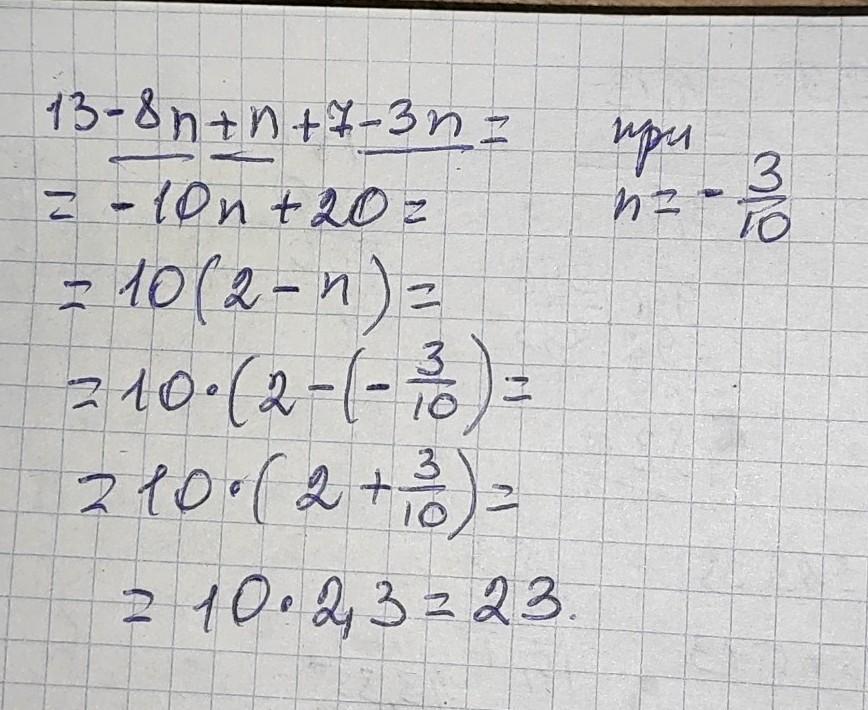 13-8n+n+7-3n= при
= -10n+20= n=-3/10
=10(2-n)=
=10·(2-(-3/10)=
=10·(2+3/10)=
=10·2,3=23.